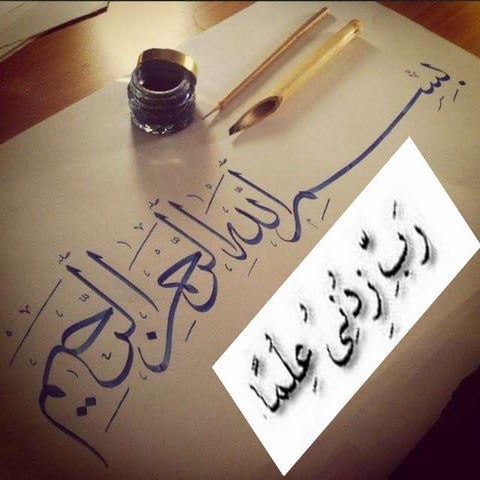 بِسْمِ اللهِ الرَّحْمٰنِ الرَّحِيْمِ
رَبِّ زِدْنِی عِلْمًا